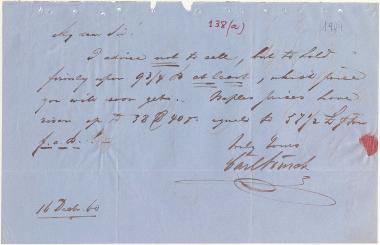 138(a)
1904
My dear Sir!
I advise not to sell, but to hold
firmly upon 93/4 at least, which price
you will soon get. Naples prices have
risen up to 38 @ 40 equals to 57 1/2
Truly Yours
16 Decbr 60